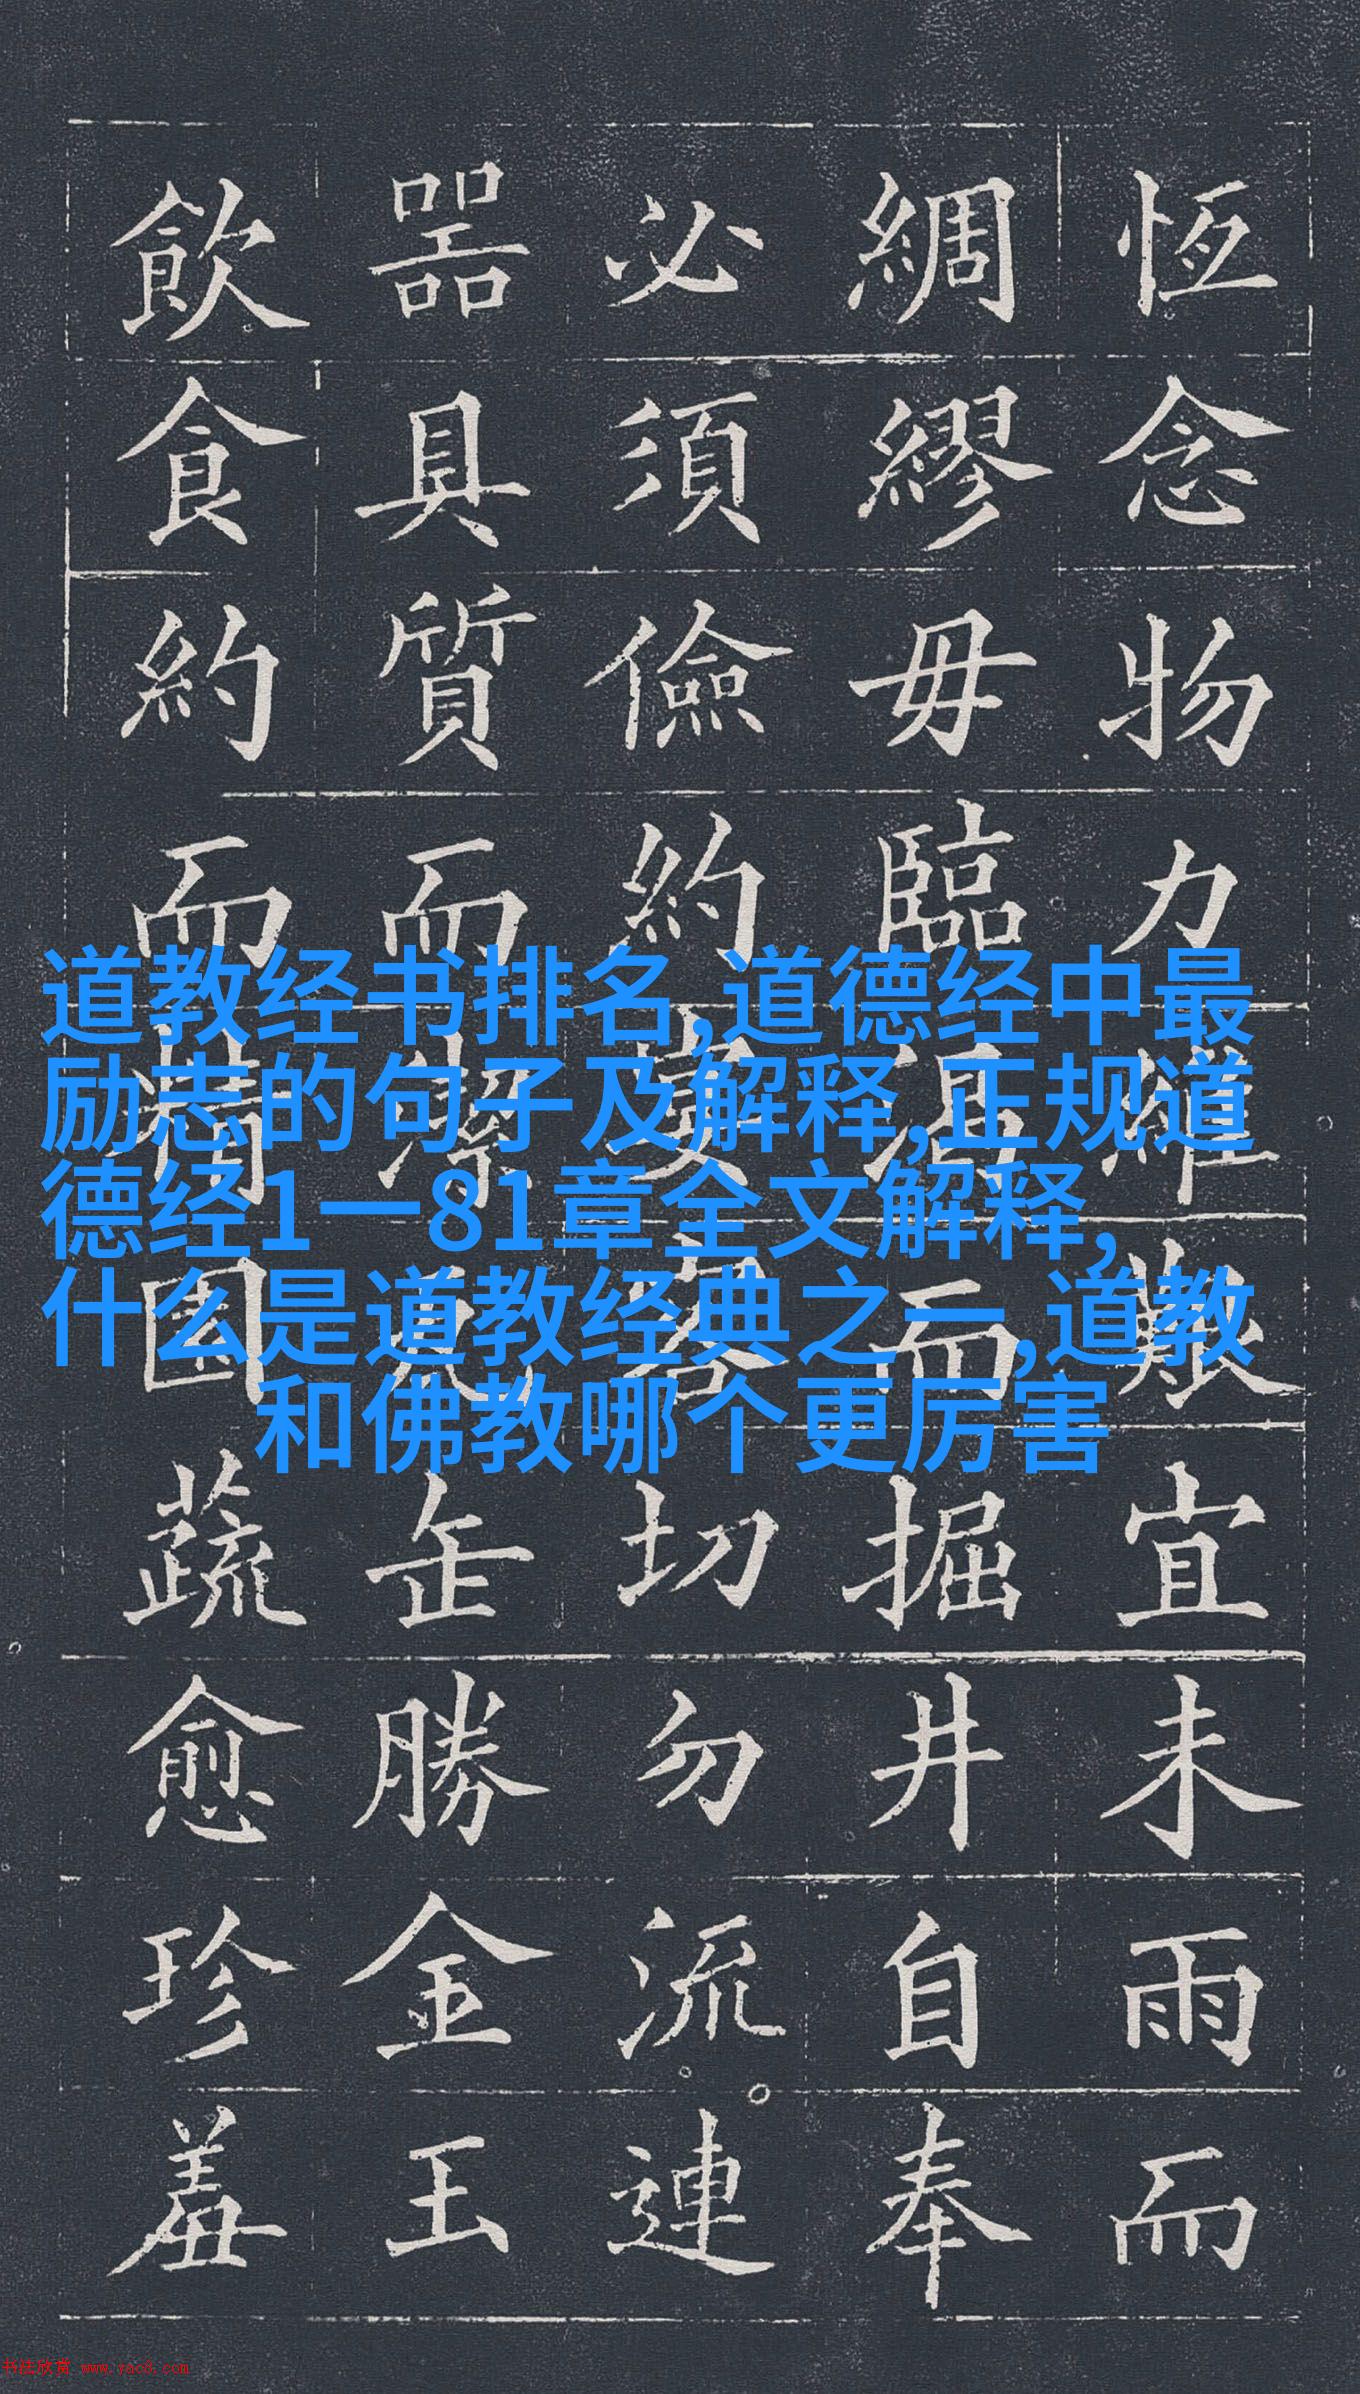 恆念物力維艱宜未雨而
綢繆毋臨渴而掘井自奉
必須儉約宴客切勿流連
噐具質而潔瓦缶勝金玉
飲食約而精園蔬愈珍羞
道教经书排名,道德经中最
励志的句子及解释,正规道
德经1一81章全文解释,
什么是道教经典之一,道教
和佛教哪个更厉害
书法欣赏 www.yac8.com